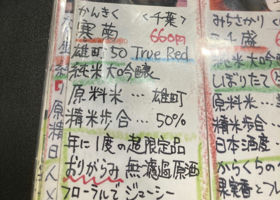 かんきく
<千葉>
寒菊
660円
雄町50 True Red
純米大吟醸
原料米…雄町
精米歩合…50%
年に1度の超限定品
おりがらみ 無濾過原酒
フローラルで ジューシー
みちさかり
純米大吟
しぼりたて
原料米…
精米歩合
日本酒度…
からくちの
果実香とフ